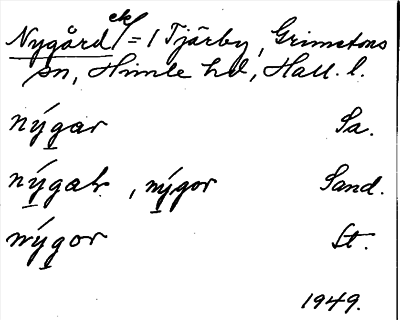 Nygård ek = 1 Tjärby, Grimetons
sn, Himle hd, Hall. l.
nýgar Sa.
nýgaṙ, nýgor Sand.
nýgor St.
1949.